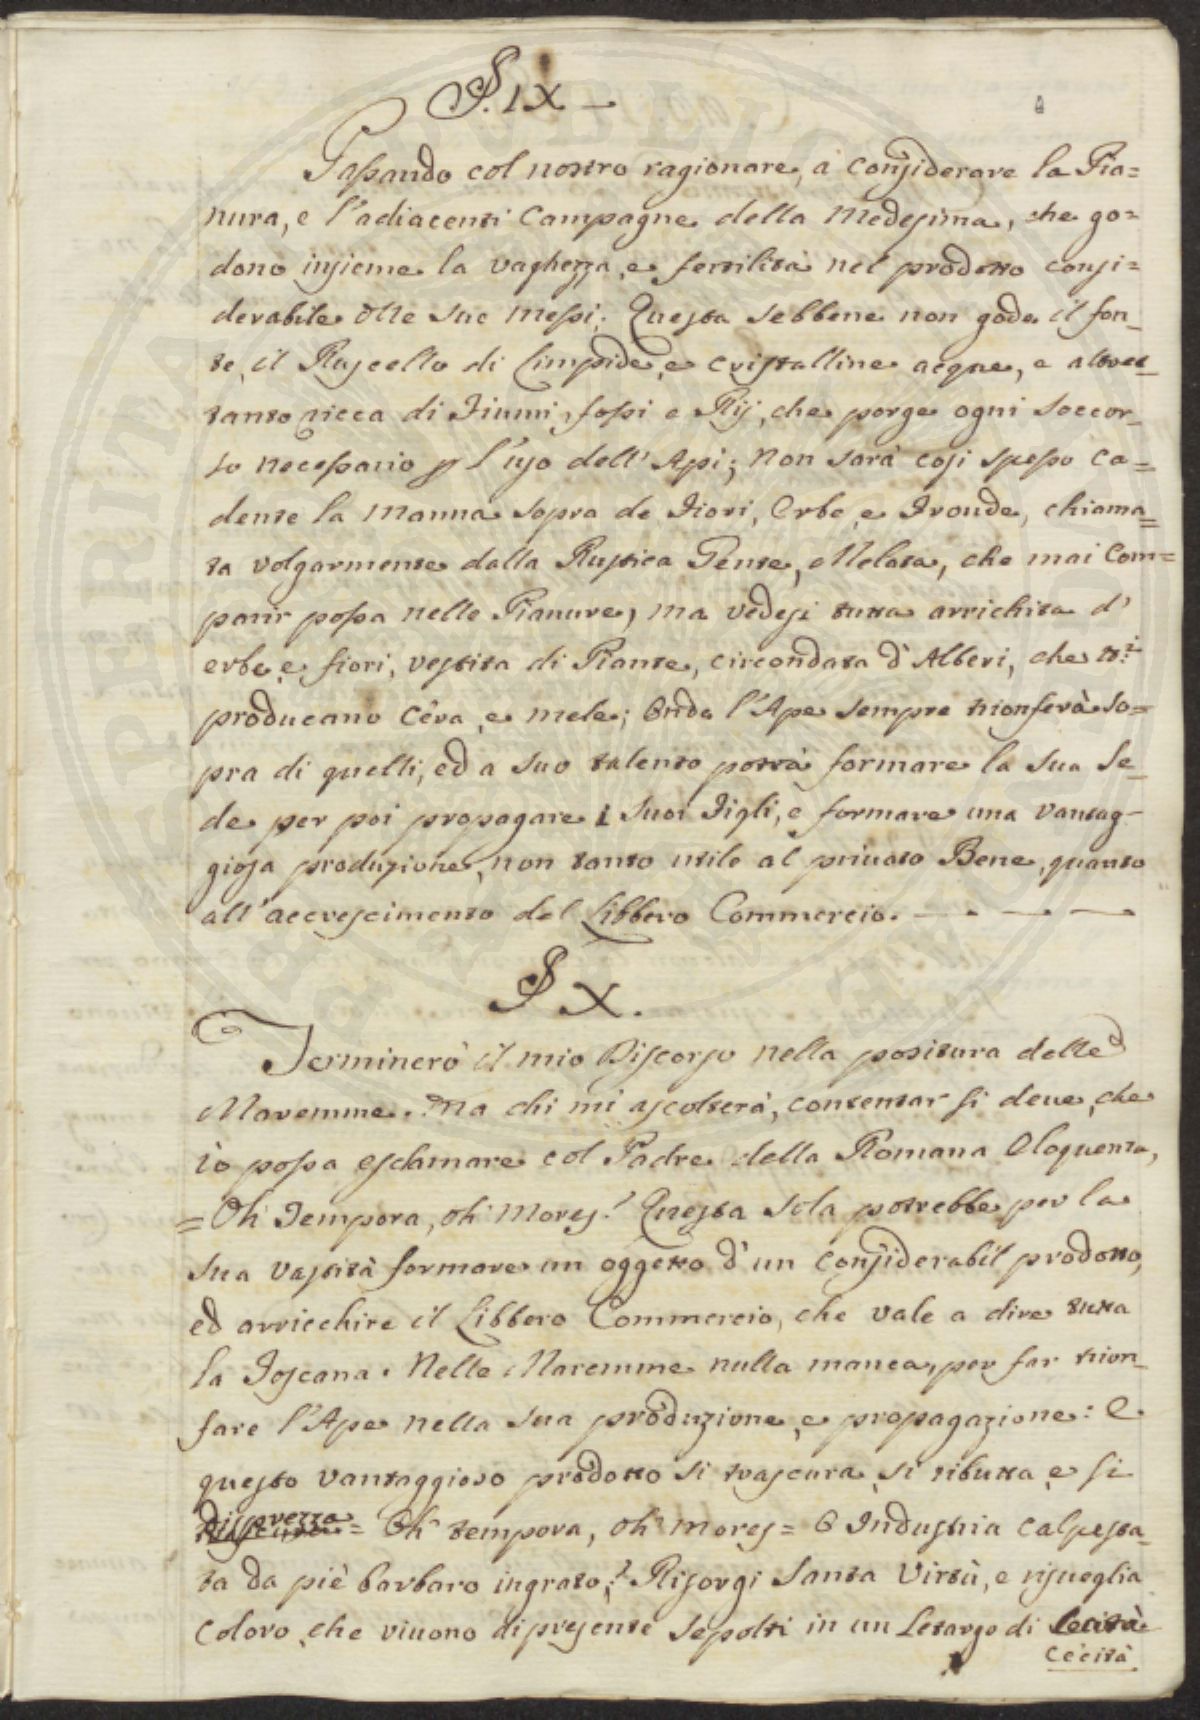 §. IX —
Passando col nostro ragionare, à considerare la Pia=
nura, e l'adiacenti Campagne della Medesima, che go=
dono insieme la vaghezza, e fertilità nel prodotto consi=
derabile delle sue Messi. Questa sebbene non goda il fon_
te, il Ruscello di limpide, e cristalline acque, e altret_
tanto ricca di Fiumi, fossi e Rij, che porge ogni soccor_
so necessario p l'uso dell'Api; Non sarà così spesso ca=
dente la Manna sopra de Fiori, Erbe, e Fronde, chiama=
ta volgarmente dalla Rustica Gente, Melata, che mai Com=
parir possa nelle Pianure, ma vedesi tutta arrichita d'
erbe, e fiori, vestita di Piante, circondata d'Alberi, che tt.i
producano Cêra, e mele; Onde l'Ape sempre trionferà so=
pra di quelli, ed a suo talento potrà formare la sua Se_
de per poi propagare i suoi Figli, e formare una vantag-
giosa produzione, non tanto utile al privato Bene, quanto
all'accrescimento del Libbero Commercio. — . — . —
§ X.
Terminerò il mio Discorso nella positura delle
Maremme. Ma chi mi ascolterà, contentar si deve, che
io possa esclamare col Padre della Romana Eloquenza,
= Oh Tempora, oh Mores! Questa sola potrebbe per la
sua vastità formare un oggetto d'un considerabil prodotto,
ed arricchire il Libbero Commercio, che vale a dire tutta
la Toscana. Nelle Maremme nulla manca, per far trion_
fare l'Ape nella sua produzione, e propagazione: E
questo vantaggioso prodotto si trascura, si ributta, e si
disprezza = Oh tempora, oh mores = O Industria calpesta_
ta da piè barbaro ingrato! Risorgi Santa Virtù, e risueglia
coloro, che viuono di presente sepolti in un Letargo di
Cecità